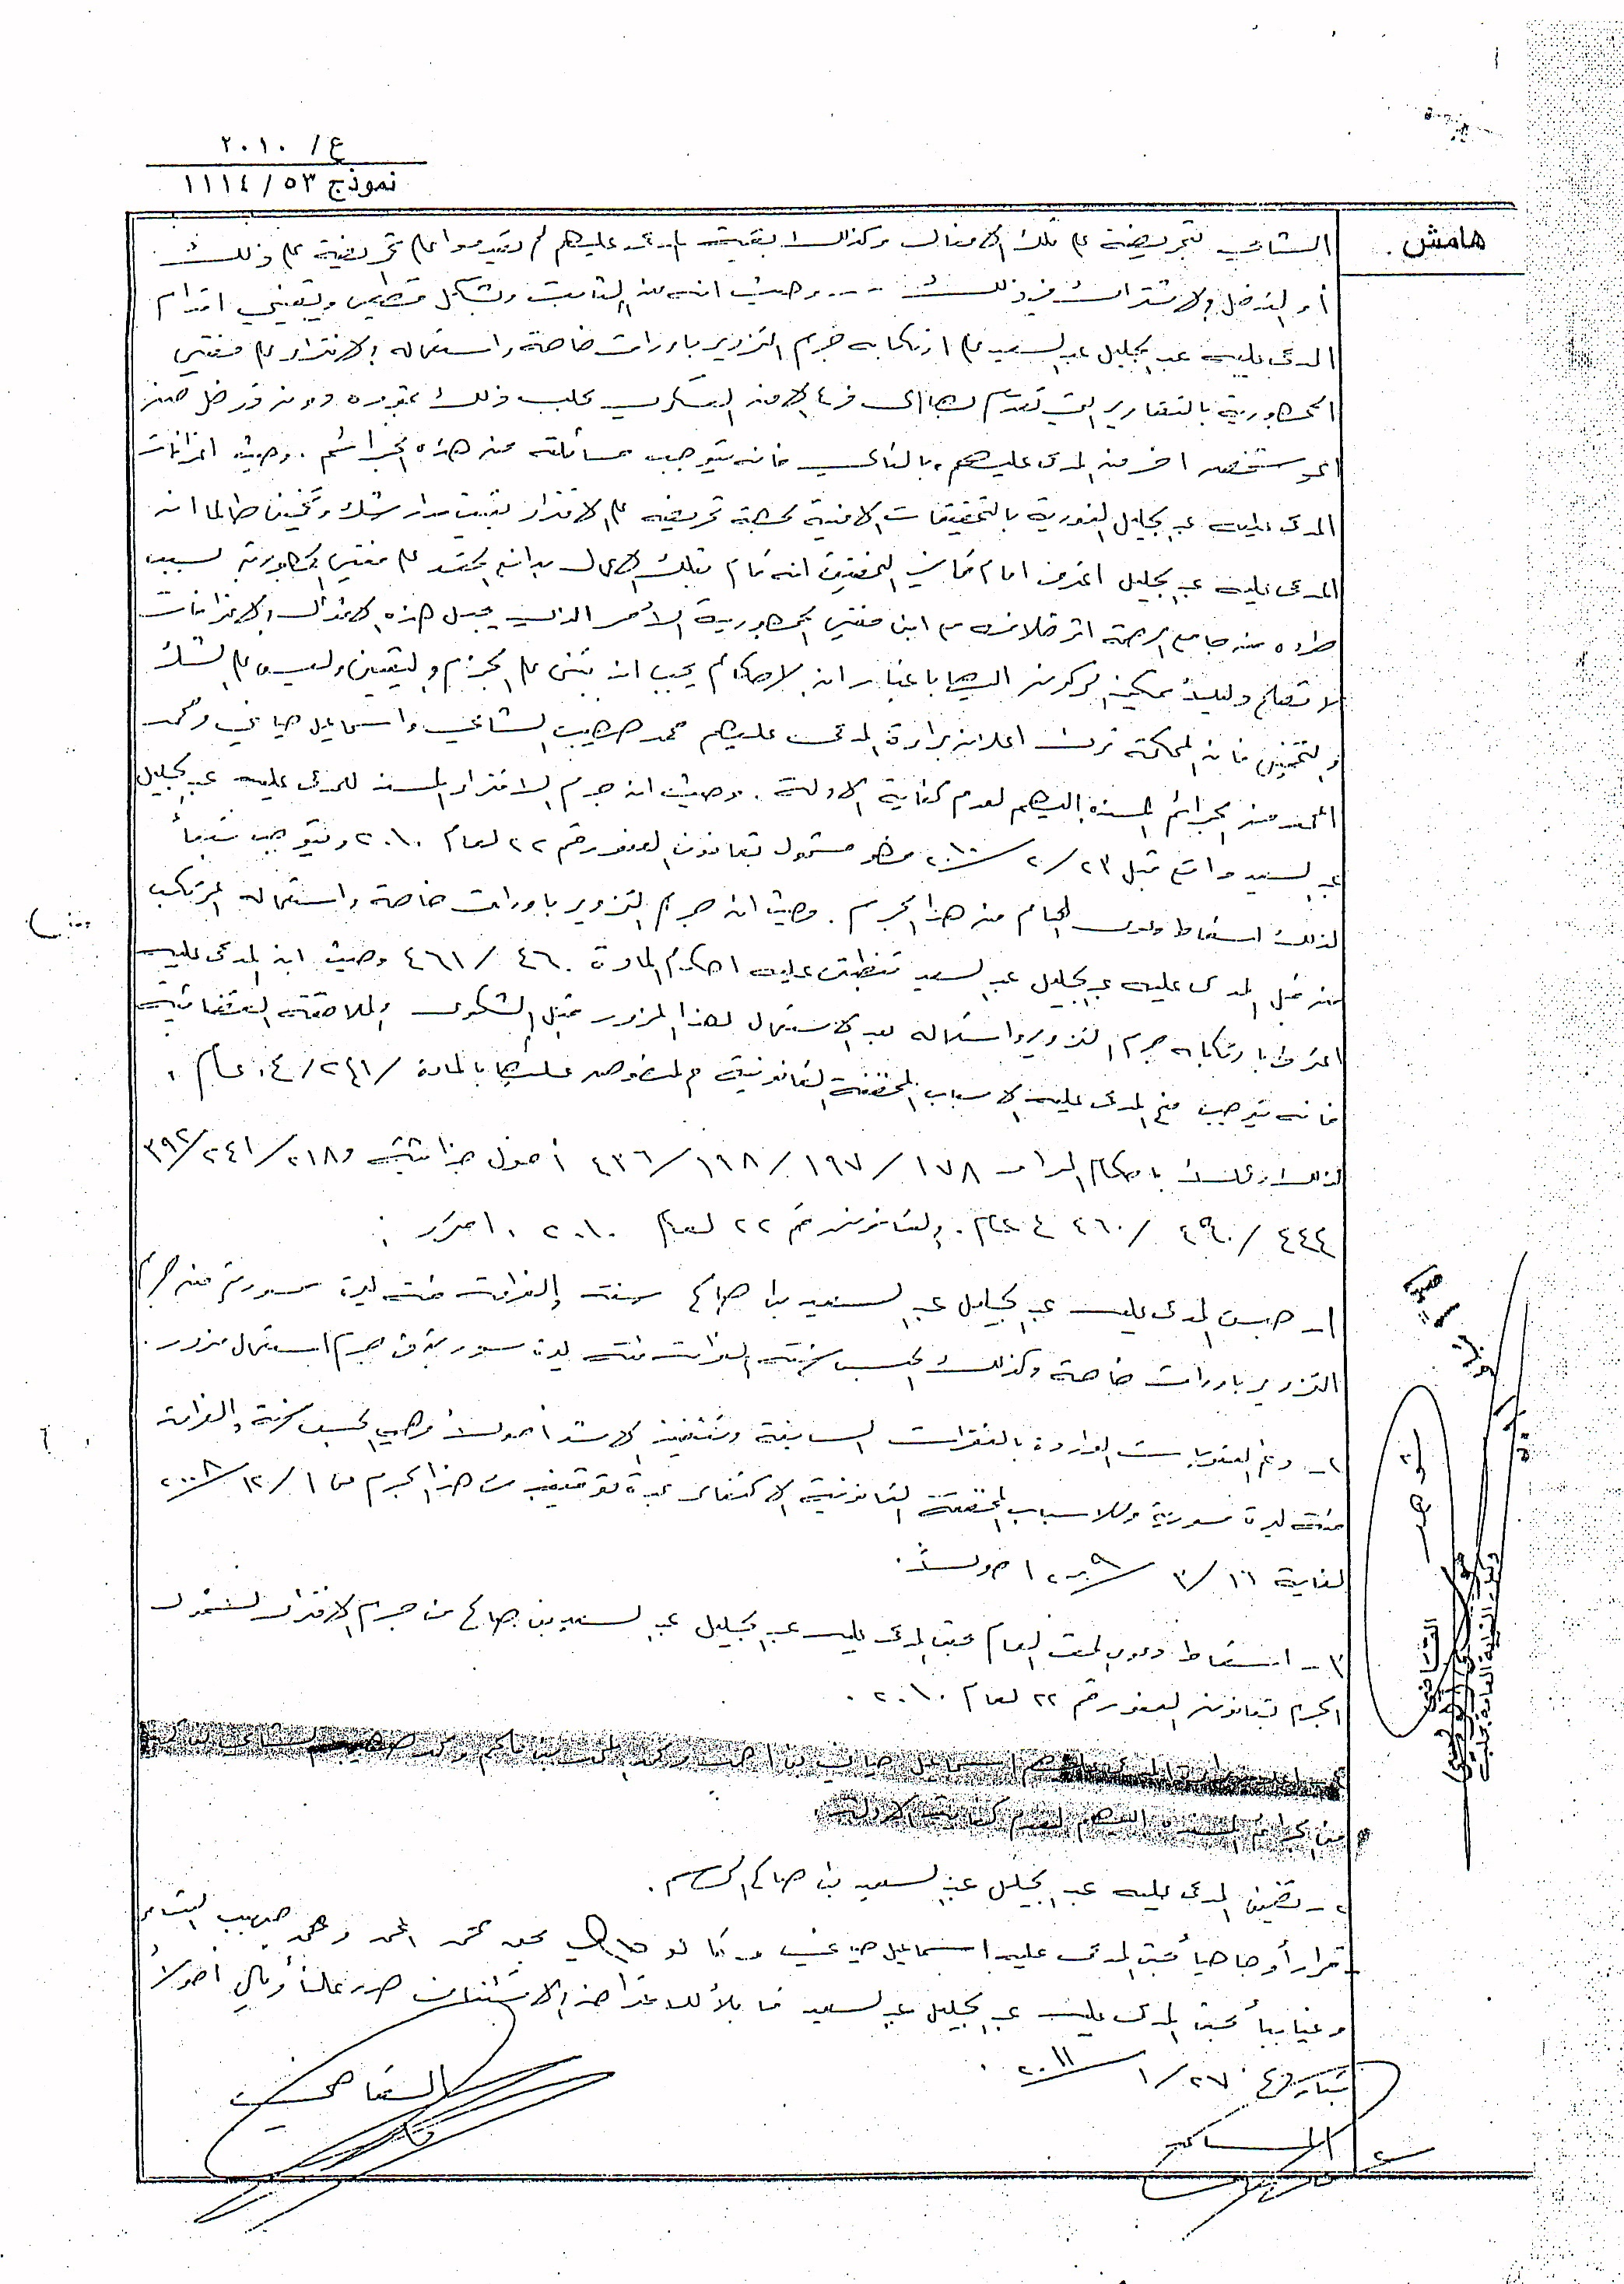 ع/ ٢٠١٠
نموذج ٥٣/ ١١١٤
هامش .
الشامي بتحريضه على تلك الافعال وكذلك بقية المدعى عليهم لم يقدموا على تحريضه على ذلك
أو التدخل والاشتراك في ذلك ... وحيث انه من الثابت وبشكل قطعي ويقيني اقدام
المدعى عليه عبد الجليل عبد السعيد على ارتكابه جرم التزوير باوراق خاصة واستعماله والافتراء على مفتي
الجمهورية بالتقارير التي تقدم بها الى فرع الامن العسكري بحلب وذلك بمفرده ودون تدخل من
اي شخص اخر من المدعى عليهم، بالتالي فانه يتوجب مسائلته عن هذه الجرائم . وحيث
المدعى عليه عبد الجليل الفورية بالتحقيقات الامنية لجهة تحريضه على الافتراء مدار شك وتخمين طالما انه
المدعى عليه عبد الجليل اعترف امام قاضي التحقيق انه قام بتلك الاعمال على مفتي الجمهورية بسبب
طرده من جامع الرحمة اثر خلافه مع ابن مفتي الجمهورية الأمر الذي يجعل هذه الاقوال والاعترافات
لا تصلح دليلاً يمكن الركون اليها باعتبار ان الاحكام يجب ان تبنى على الجزم واليقين وليس على الشك
والتخمين فان المحكمة ترى اعلان براءة المدعى عليهم محمد صهيب الشامي واسماعيل حياني ومحمد
المحمد من الجرائم المسنده اليهم لعدم كفاية الادلة . وحيث ان جرم الافتراء المسند للمدعى عليه عبد الجليل
عبد السعيد واقع قبل ٢٣/ ٢/ ٢٠١٠ وهو مشمول بقانون العفو رقم ٢٢ لعام ٢٠١٠ ويتوجب تبعاً
لذلك اسقاط دعوى الحق العام عن هذا الجرم . وحيث ان جرم التزوير باوراق خاصة واستعماله المرتكب
من قبل المدعى عليه عبد الجليل عبد السعيد تنطبق عليه احكام المادة ٤٦٠ / ٤٦١ وحيث ان المدعى عليه
اعترف بارتكابه جرم التزوير واستعماله بعد الاستعمال لهذا المزور قبل الشكوى والملاحقة القضائية
فانه يتوجب منح المدعى عليه الاسباب المخففة القانونية المنصوص عليها بالمادة / ٢٤١/ ع. عام .
لذلك وعملاً باحكام المواد ١٧٨ / ١٩٧ / ١٩٨ / ٤٣٦ أصول جزائية و ٢١٨ / ٢٤١ / ٣٩٢
٤٤٤ / ٤٦٠ ع عام . والقانون رقم ٢٢ لعام ٢٠١٠ . اقرر :
١ـ حبس المدعى عليه عبد الجليل عبد السعيد بن صالح سنة والغرامة مئة ليرة سورية عن جرم
التزوير باوراق خاصة وكذلك الحبس سنة والغرامة مئة ليرة سورية عن جرم استعمال مزور .
٢ـ دغم العقوبات الواردة بالفقرات السابقة وتنفيذ الاشد أصولاً وهي الحبس سنة والغرامة
مئة ليرة سورية وللاسباب المخففة القانونية الاكتفاء بمدة توقيفه عن هذا الجرم من ١/ ١٢/ ٢٠٠٨
لغاية ١٦/ ٣/ ٢٠٠٩ اصولاً .
٣ـ اسقاط دعوى الحق العام بحق المدعى عليه عبد الجليل عبد السعيد بن صالح عن جرم الافتراء لشمول
الجرم بقانون العفو رقم ٢٢ لعام ٢٠١٠ .
اسماعيل حياني بن احمد
من الجرائم المسنده اليهم لعدم كفاية الادلة .
ـ تضمين المدعى عليه عبد الجليل عبد السعيد بن صالح الرسم .
قراراً وجاهياً بحق المدعى عليه اسماعيل حياني بحق محمد المحمد ومحمد صهيب الشامي
وغيابياً بحق المدعى عليه عبد الجليل عبد السعيد قابلاً للاعتراض والاستئناف صدر علناً أصولاً
بتاريخ ٢٧/ ١/ ٢٠١١ .
القاضي
المساعد
القاضي
وكيل النيابة العامة بحلب